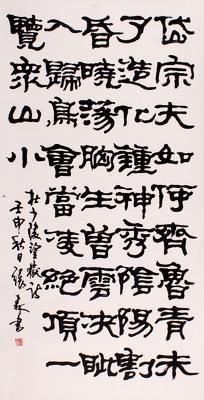 岱宗夫如何齊魯青未
了造化鍾神秀陰陽割
昏曉蕩胸生曾雲決眦
入歸鳥會當凌絕頂一
覽眾山小
杜少陵望嶽詩
壬申秋日張森書